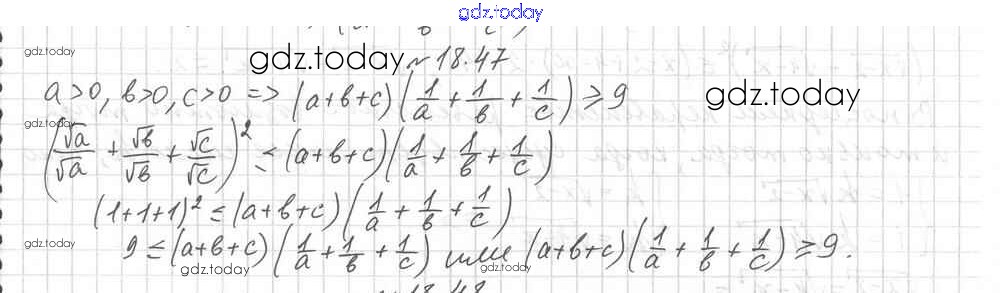 gdz.today
gdz.today
gdz.today № 18.47
a>0, b>0, c>0 => (a+b+c)(1/a + 1/b + 1/c) ≥ 9
gdz.today
gdz.today
(√a/√a + √b/√b + √c/√c)² ≤ (a+b+c)(1/a + 1/b + 1/c)
(1+1+1)² ≤ (a+b+c)(1/a + 1/b + 1/c)
gdz.today
9 ≤ (a+b+c)(1/a + 1/b + 1/c) или (a+b+c)(1/a + 1/b + 1/c) ≥ 9.
gdz.today
gdz.today
№ 18.48